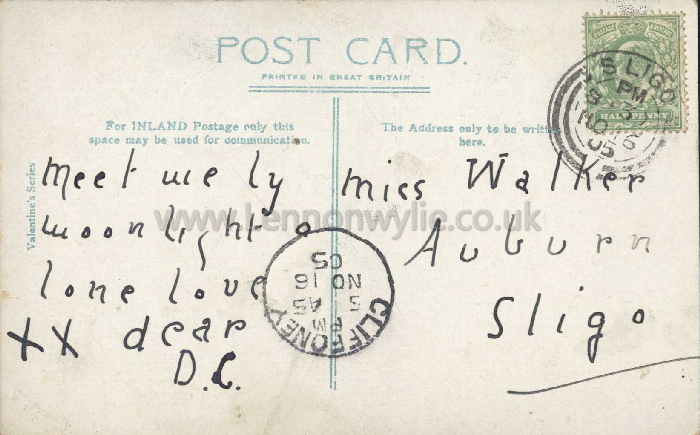 POST CARD.
PRINTED IN GREAT BRITAIN
For INLAND Postage only this
space may be used for communication.
The Address only to be written
here.
Valentine's Series
Meet me by
moonlight a
lone love
XX dear
D.C.
Miss Walker
Auburn
Sligo
HALFPENNY
SLIGO
PM
NO 16
05
CLIFFONEY
PM
5
NO 16
05
www.Lennonwylie.co.uk